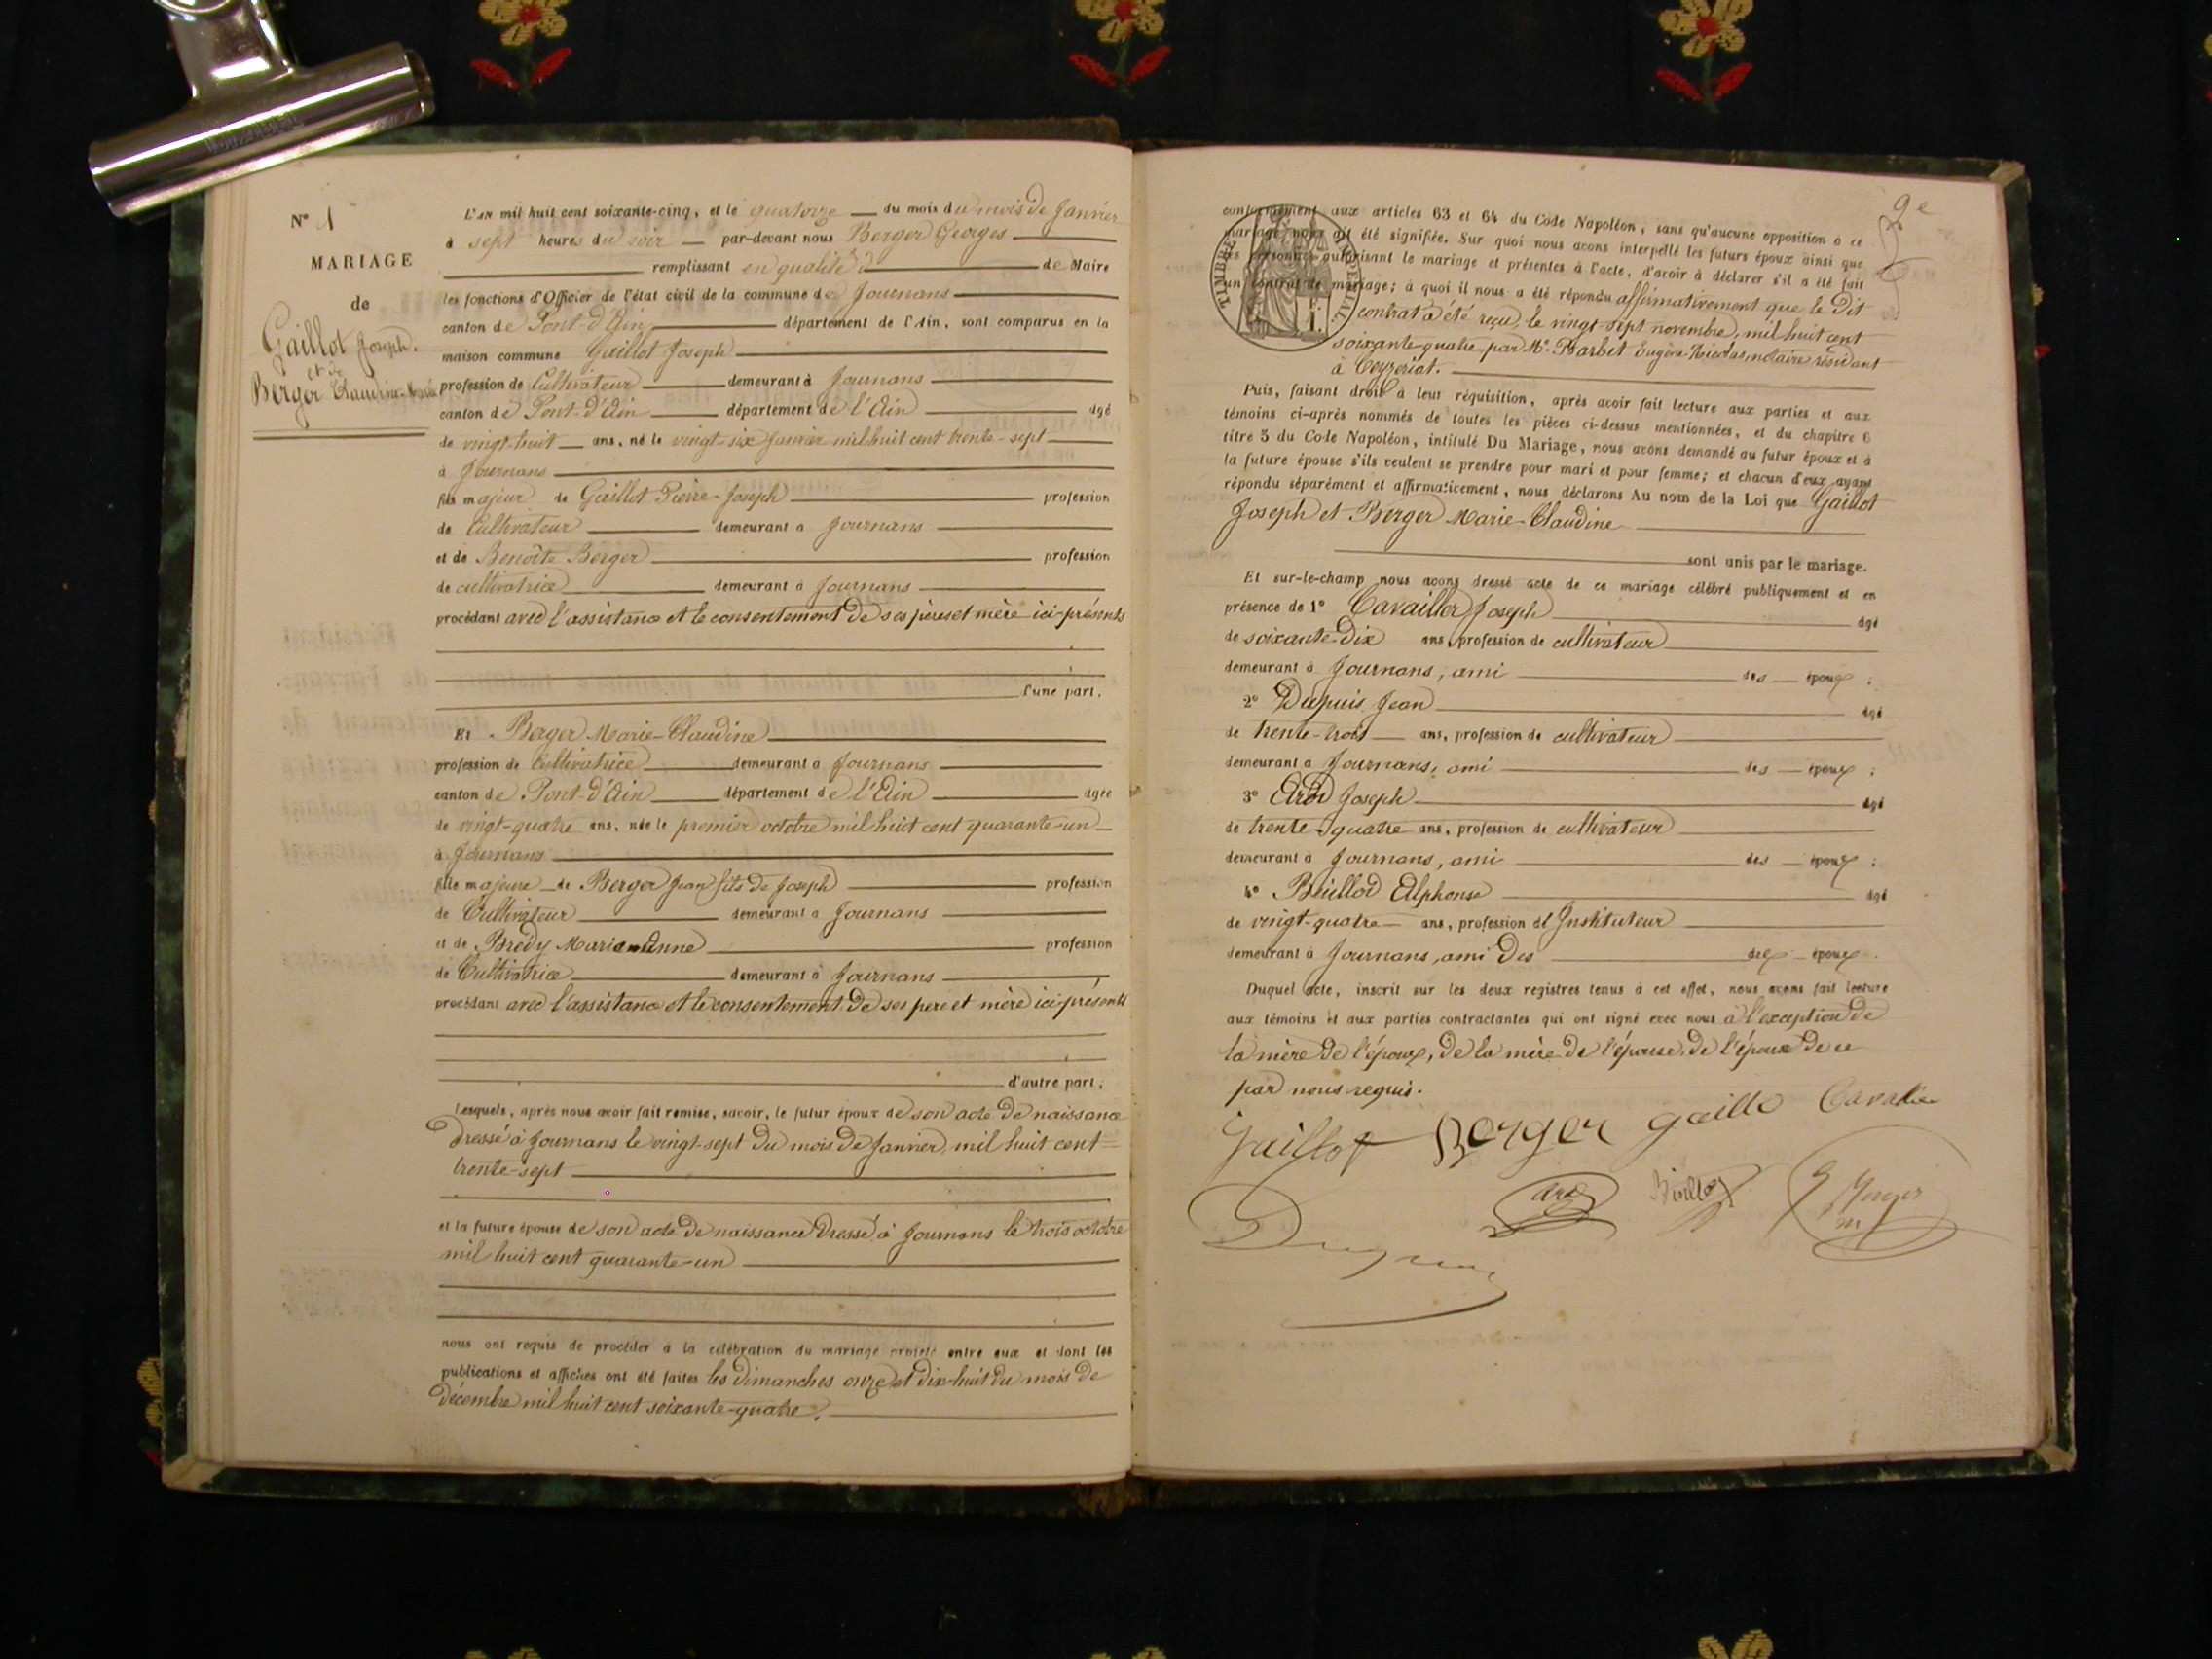 N° 1
MARIAGE
de
Gaillot Joseph.
et de
Berger Claudine-Marie
L'AN mil huit cent soixante-cinq, et le quatorze du mois du mois de Janvier
à sept heures du soir par-devant nous Berger Georges
remplissant en qualité de Maire
les fonctions d'Officier de l'état civil de la commune de Journans
canton de Pont-d'Ain département de l'Ain, sont comparus en la
maison commune Gaillot Joseph
profession de Cultivateur demeurant à Journans
canton de Pont-d'Ain département de l'Ain âgé
de vingt-huit ans, né le vingt-six Janvier mil huit cent trente-sept
à Journans
fils majeur de Gaillot Pierre-Joseph profession
de Cultivateur demeurant à Journans
et de Benoîte Berger profession
de cultivatrice demeurant à Journans
procédant avec l'assistance et le consentement de ses père et mère ici-présents
l'une part,
Et Berger Marie-Claudine
profession de Cultivatrice demeurant à Journans
canton de Pont-d'Ain département de l'Ain âgée
de vingt-quatre ans, née le premier octobre mil huit cent quarante-un
à Journans
fille majeure de Berger Jean fils de Joseph profession
de Cultivateur demeurant à Journans
et de Brédy Marie-Anne profession
de Cultivatrice demeurant à Journans
procédant avec l'assistance et le consentement de ses pere et mère ici-présents
d'autre part,
Lesquels, après nous avoir fait remise, savoir, le futur époux de son acte de naissance
dressé à Journans le vingt-sept du mois de Janvier, mil huit cent
trente-sept
et la future épouse de son acte de naissance dressé à Journans le trois octobre
mil huit cent quarante-un
nous ont requis de procéder à la célébration du mariage projeté entre eux et dont les
publications et affiches ont été faites les dimanches onze et dix-huit du mois de
décembre mil huit cent soixante-quatre.
2e
TIMBRE IMPÉRIAL
conformément aux articles 63 et 64 du Code Napoléon, sans qu'aucune opposition à ce
mariage nous ait été signifiée. Sur quoi nous avons interpellé les futurs époux ainsi que
les personnes autorisant le mariage et présentes à l'acte, d'avoir à déclarer s'il a été fait
un contrat de mariage; à quoi il nous a été répondu affirmativement que le dit
contrat a été reçu, le vingt-sept novembre, mil huit cent
soixante-quatre par Me Barbet Eugène-Nicolas, notaire résidant
à Ceyzériat.
Puis, faisant droit à leur réquisition, après avoir fait lecture aux parties et aux
témoins ci-après nommés de toutes les pièces ci-dessus mentionnées, et du chapitre 6
titre 5 du Code Napoléon, intitulé Du Mariage, nous avons demandé au futur époux et à
la future épouse s'ils veulent se prendre pour mari et pour femme; et chacun d'eux ayant
répondu séparément et affirmativement, nous déclarons Au nom de la Loi que Gaillot
Joseph et Berger Marie-Claudine
sont unis par le mariage.
Et sur-le-champ nous avons dressé acte de ce mariage célébré publiquement et en
présence de 1° Cavaillier Joseph âgé
de soixante-dix ans, profession de cultivateur
demeurant à Journans, ami des époux ;
2° Dupuis Jean âgé
de trente-trois ans, profession de cultivateur
demeurant à Journans, ami des époux ;
3° Arod Joseph âgé
de trente-quatre ans, profession de cultivateur
demeurant à Journans, ami des époux ;
4° Alphonse âgé
de vingt-quatre ans, profession d'Instituteur
demeurant à Journans, ami des des époux.
Duquel acte, inscrit sur les deux registres tenus à cet effet, nous avons fait lecture
aux témoins et aux parties contractantes qui ont signé avec nous à l'exception de
la mère de l'époux, de la mère de l'épouse, de l'épouse de ce
par nous requis.
Gaillot Berger gaillo Cavalie
Berger